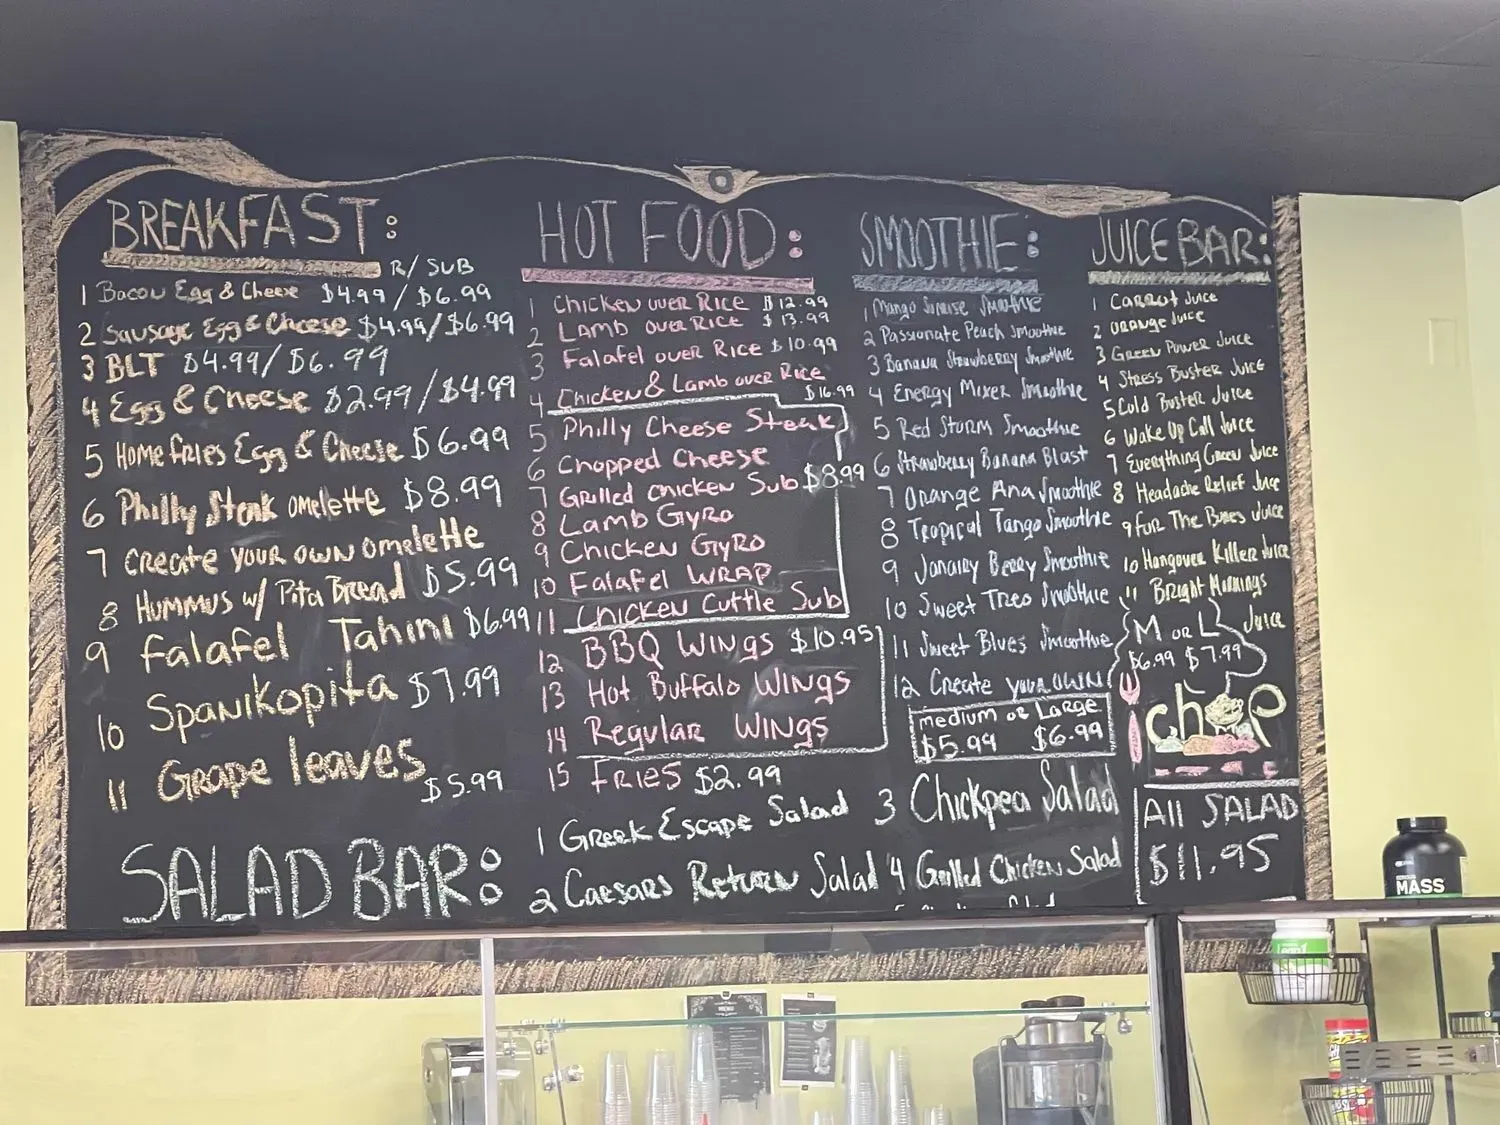 BREAKFAST:
R/ SUB
1 Bacon Egg & Cheese $4.99 / $6.99
2 Sausage Egg & Cheese $4.99/$6.99
3 BLT $4.99/$6.99
4 Egg & Cheese $2.99/$4.99
5 Home fries Egg & Cheese $6.99
6 Philly Steak omelette $8.99
7 Create your own omelette
8 Hummus w/ Pita Bread $5.99
9 Falafel Tahini $6.99
10 Spanikopita $7.99
11 Grape leaves $5.99
HOT FOOD:
1 Chicken over Rice $12.99
2 Lamb over Rice $13.99
3 Falafel over Rice $10.99
4 Chicken & Lamb over Rice
$16.99
5 Philly Cheese Steak
6 Chopped Cheese
7 Grilled Chicken Sub $8.99
8 Lamb Gyro
9 Chicken Gyro
10 Falafel WRAP
11 Chicken Cuttle Sub
12 BBQ Wings $10.95
13 Hot Buffalo Wings
14 Regular Wings
15 Fries $2.99
SMOOTHIE:
1 Mango Sunrise Smoothie
2 Passionate Peach Smoothie
3 Banana Strawberry Smoothie
4 Energy Mixer Smoothie
5 Red Storm Smoothie
6 Strawberry Banana Blast
7 Orange Ana Smoothie
8 Tropical Tango Smoothie
9 Janairy Berry Smoothie
10 Sweet Treo Smoothie
11 Sweet Blues Smoothie
12 Create your own
medium or Large
$5.99 $6.99
JUICE BAR:
1 Carrot Juice
2 orange Juice
3 Green Power Juice
4 Stress Buster Juice
5 Cold Buster Juice
6 Wake Up Call Juice
7 Everything Green Juice
8 Headache Relief Juice
9 For The Bones Juice
10 Hangover Killer Juice
11 Bright Mornings
Juice
M or L
$6.99 $7.99
chop
SALAD BAR:
1 Greek Escape Salad
2 Caesars Return Salad
3 Chickpea Salad
4 Grilled Chicken Salad
All SALAD
$11.95
MASS